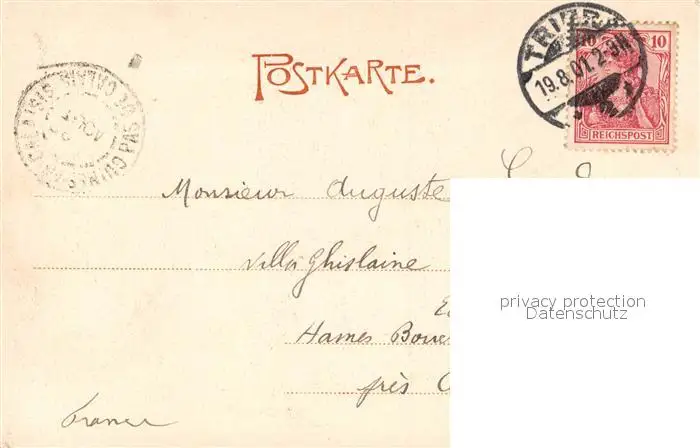 POSTKARTE.
TRIER
19.8.01.2-3N
10 10
REICHSPOST
GUINES PAS DE CALAIS
Monsieur Auguste
Villa Ghislaine
Hames
près
France
privacy protection
Datenschutz